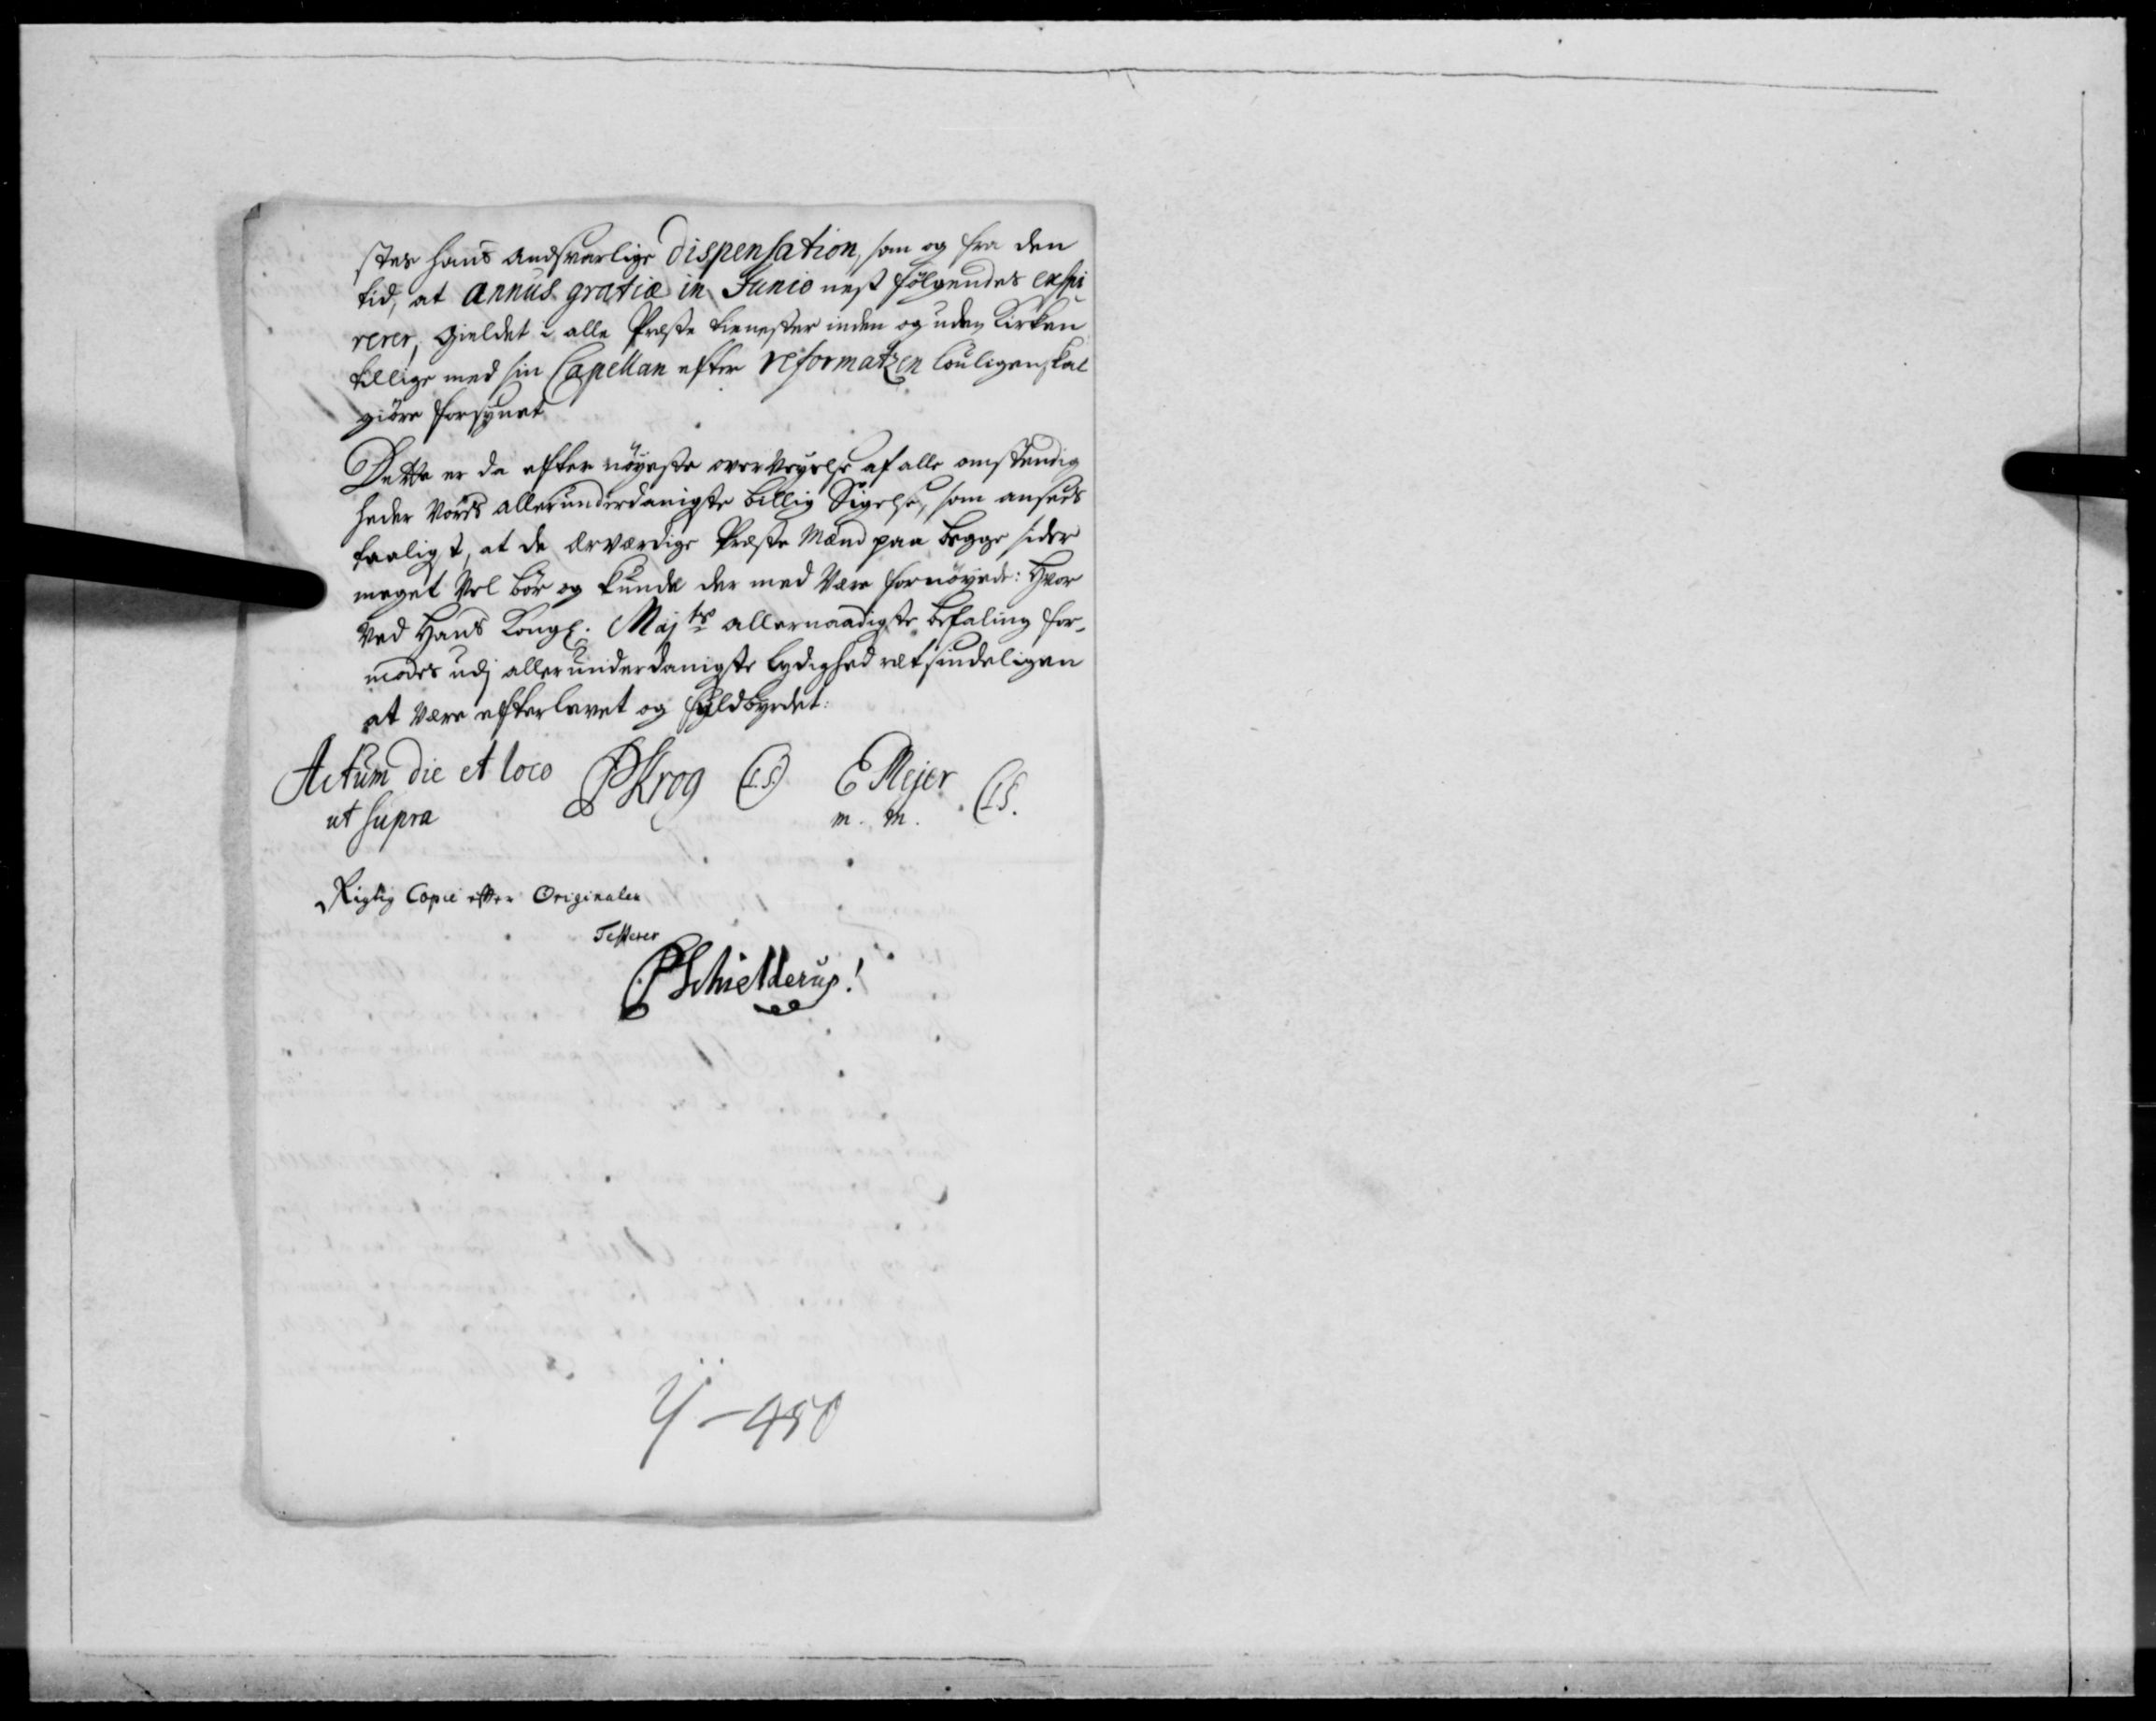 stes hans andsvarlige Dispensation, som og fra den
tid, at annus gratiæ in Junio nest følgendes expi
rerer, gieldet i alle Præste tienester inden og uden Kirken
tillige med sin Capellan efter reformatzen louligen skal
giøre forsynet
Dette er da efter nøyeste overveyelse af alle omstendig
heder vores allerunderdanigste billig Sigelse, som ansees
taaligt, at de ærværdige Præste Mænd paa begge sider
meget vel bør og kunde der med være fornøyede: Hvor
ved Hans Kongl: Majts allernaadigste befaling for-
modes udj allerunderdanigste lydighed retsindeligen
at være efterlevet og fuldbyrdet:
Actum die et loco PKrog (LS) E Mejer (LS.
ut supra m. m.
Rigtig Copie efter Originalen
Testerer
PSchielderup!
Y - 450